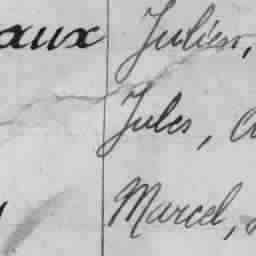 aux Julien,
Jules,
Marcel,